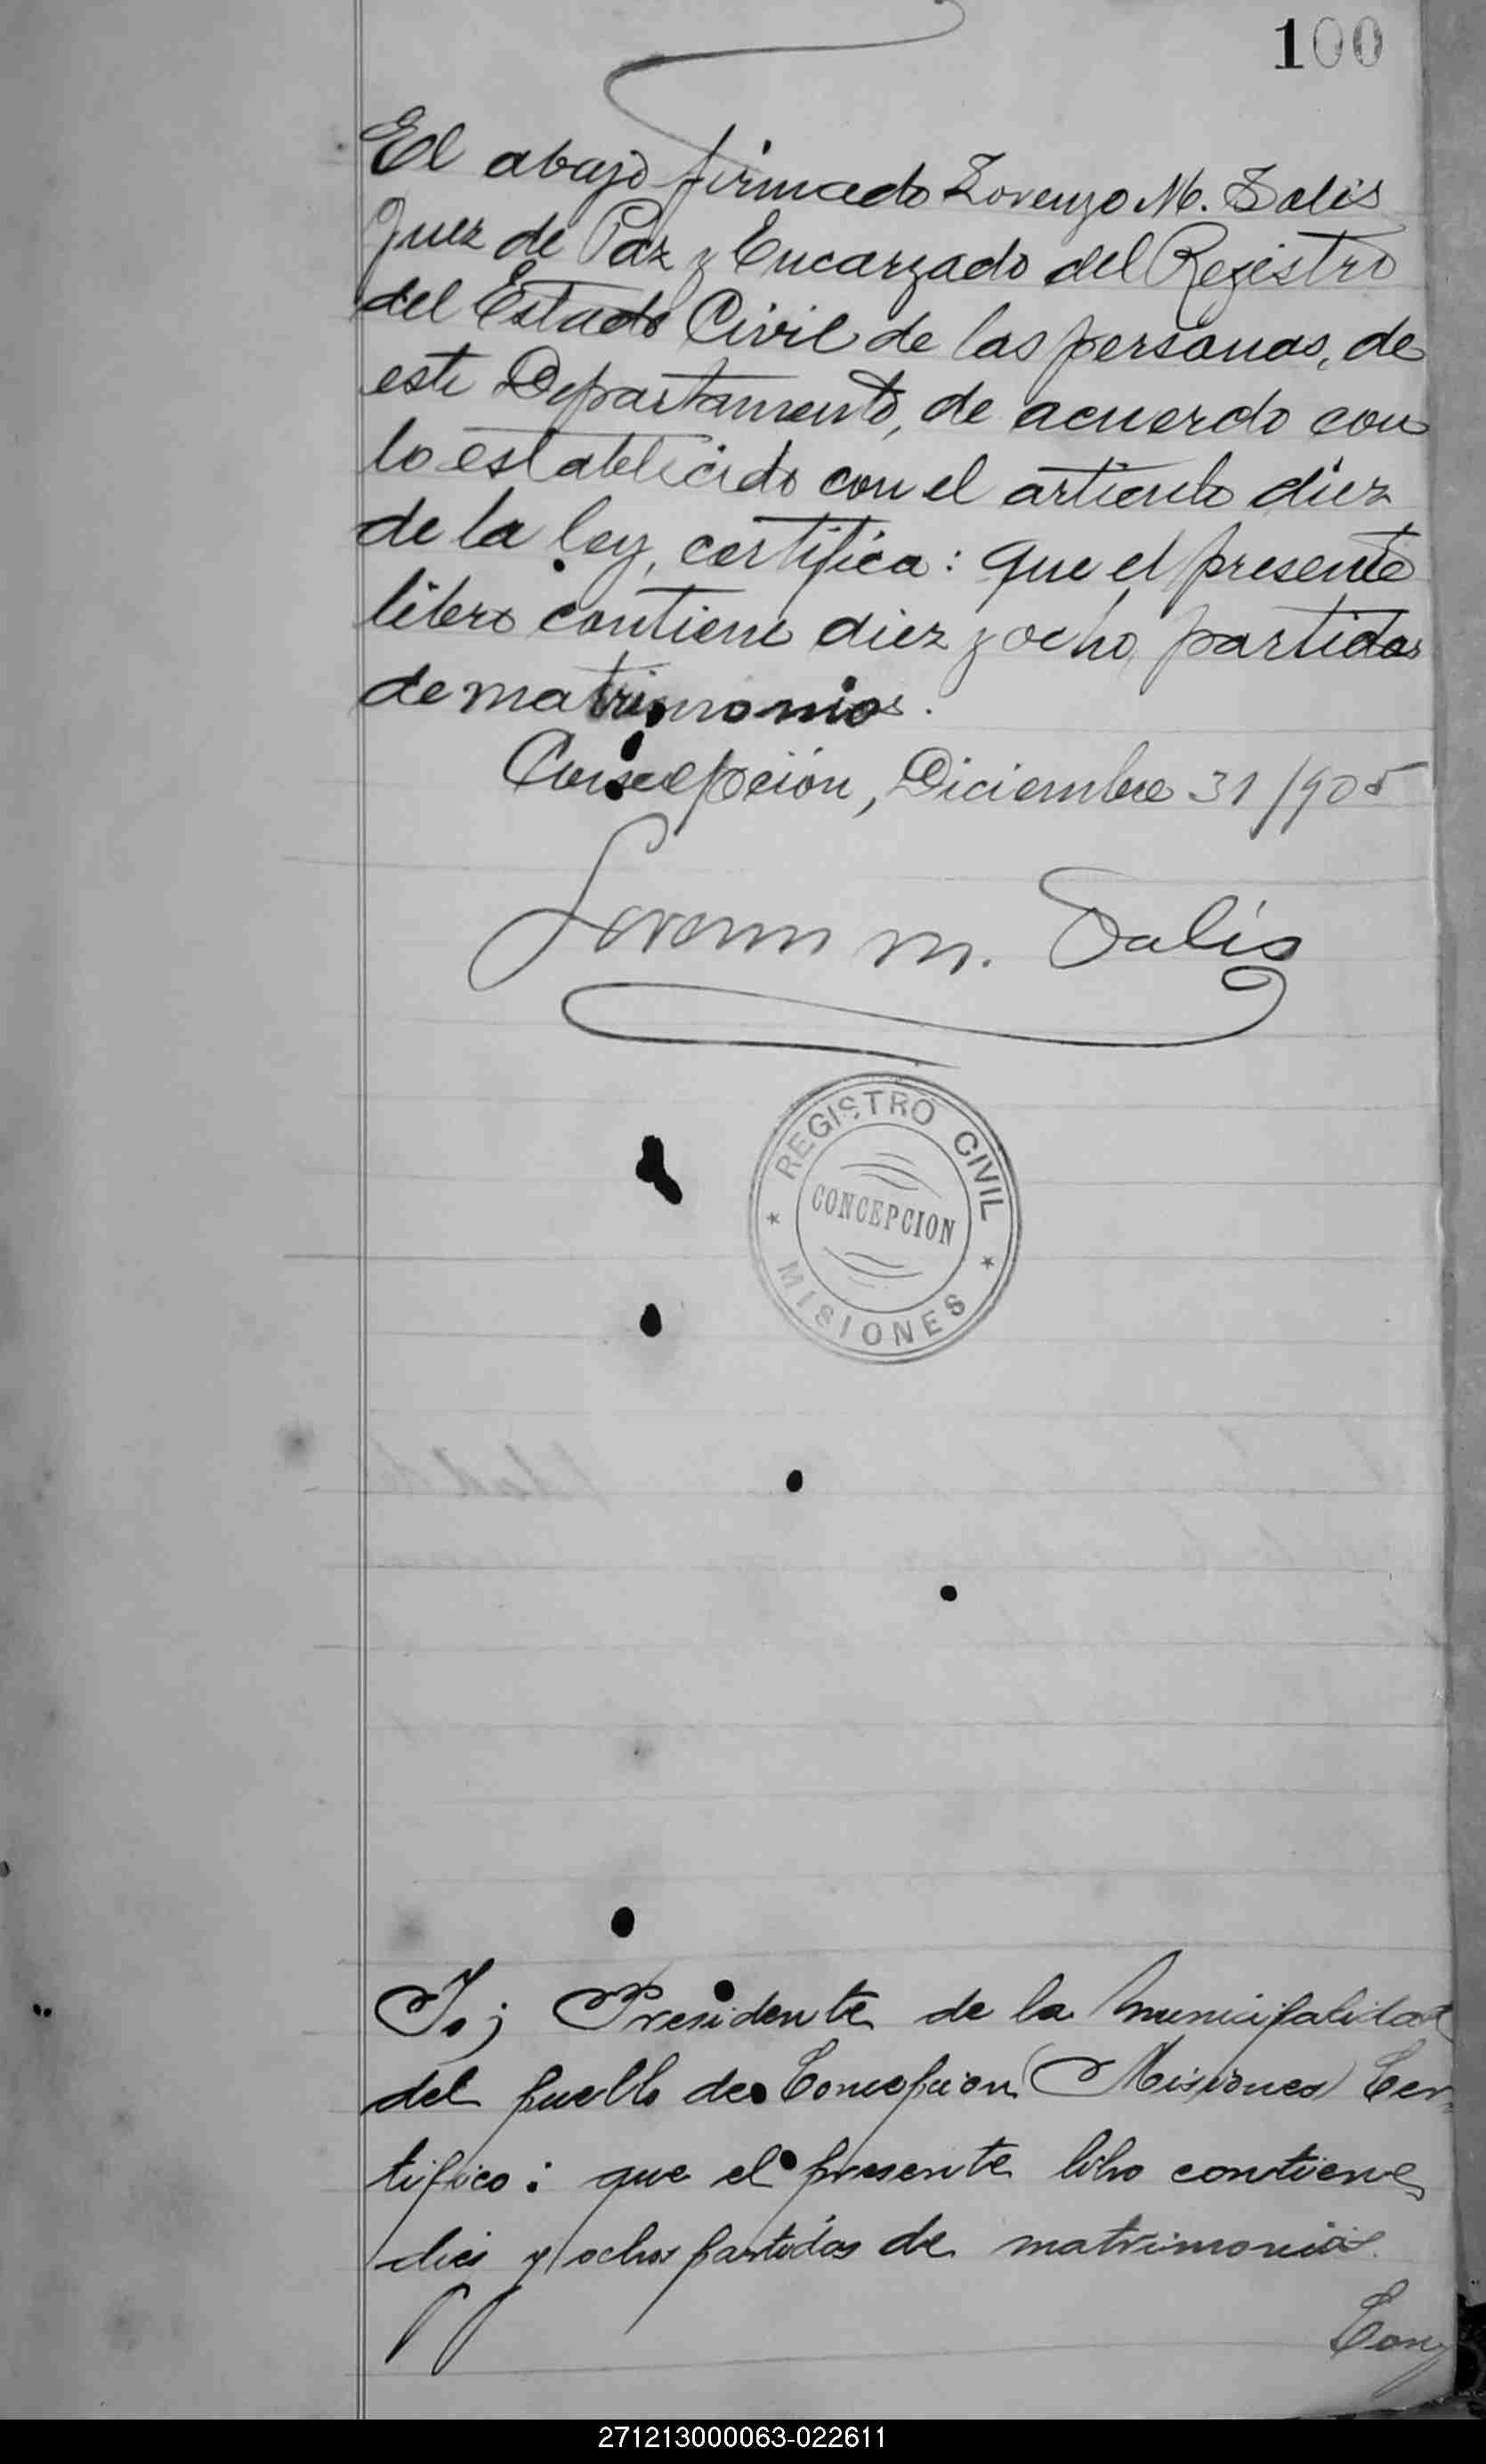 100
El abajo firmado Lorenzo M. Salis
Juez de Paz y Encargado del Registro
del Estado Civil de las personas, de
este Departamento, de acuerdo con
lo establecido con el articulo diez
de la ley, certifica: que el presente
libro contiene diez y ocho partidas
de matrimonios.
Concepción, Diciembre 31/905
Lorenzo M. Salis
REGISTRO CIVIL
CONCEPCION
MISIONES
Yo; Presidente de la Municipalidad
del pueblo de Concepcion (Misiones) Cer-
tifico: que el presente libro contiene
dies y ochos partidas de matrimonios.
Con
271213000063-022611